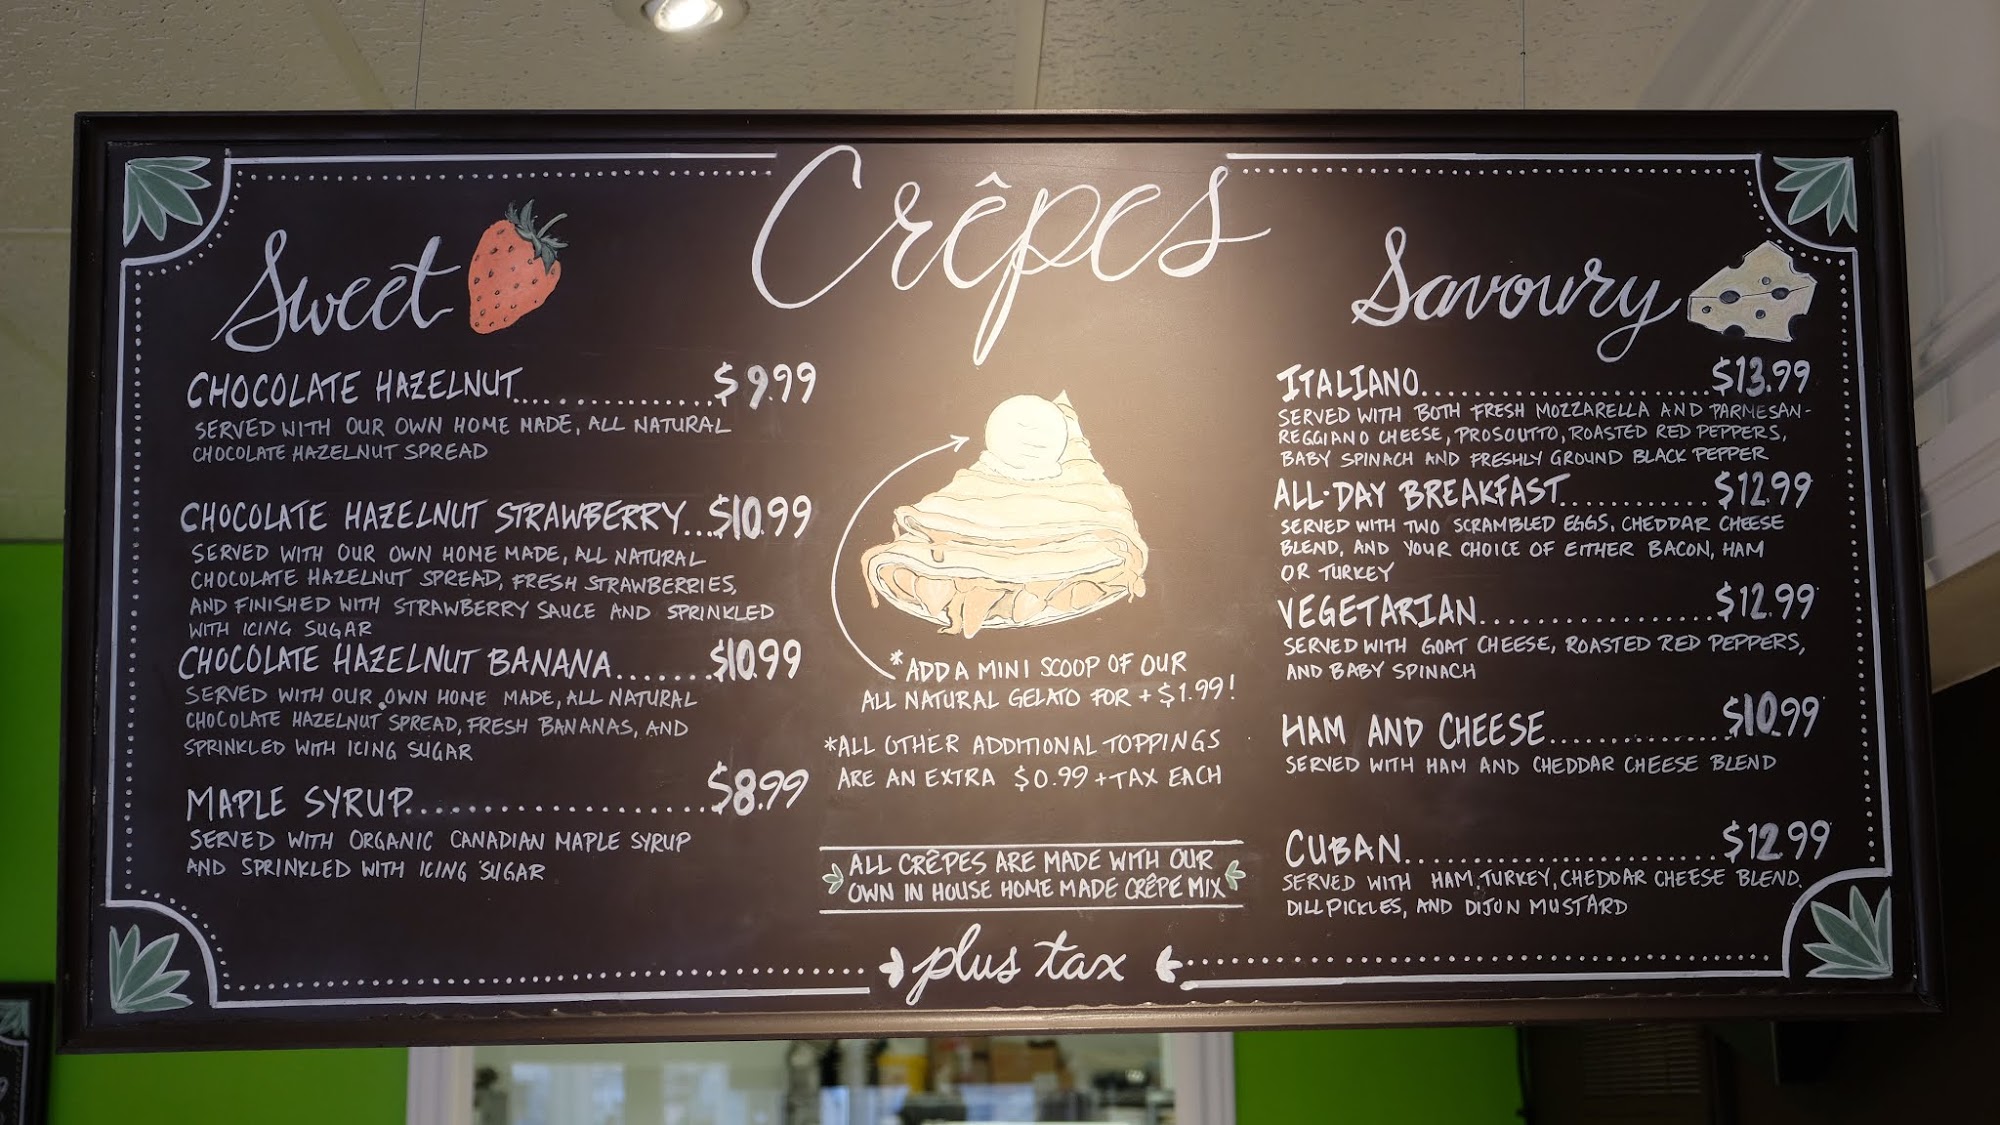 Crêpes
Sweet
CHOCOLATE HAZELNUT..............$9.99
SERVED WITH OUR OWN HOME MADE, ALL NATURAL
CHOCOLATE HAZELNUT SPREAD
CHOCOLATE HAZELNUT STRAWBERRY...$10.99
SERVED WITH OUR OWN HOME MADE, ALL NATURAL
CHOCOLATE HAZELNUT SPREAD, FRESH STRAWBERRIES,
AND FINISHED WITH STRAWBERRY SAUCE AND SPRINKLED
WITH ICING SUGAR
CHOCOLATE HAZELNUT BANANA.......$10.99
SERVED WITH OUR OWN HOME MADE, ALL NATURAL
CHOCOLATE HAZELNUT SPREAD, FRESH BANANAS, AND
SPRINKLED WITH ICING SUGAR
MAPLE SYRUP....................$8.99
SERVED WITH ORGANIC CANADIAN MAPLE SYRUP
AND SPRINKLED WITH ICING SUGAR
*ADD A MINI SCOOP OF OUR
ALL NATURAL GELATO FOR + $1.99!
*ALL OTHER ADDITIONAL TOPPINGS
ARE AN EXTRA $0.99 + TAX EACH
ALL CRÊPES ARE MADE WITH OUR
OWN IN HOUSE HOME MADE CRÊPE MIX
plus tax
Savoury
ITALIANO..........................$13.99
SERVED WITH BOTH FRESH MOZZARELLA AND PARMESAN-
REGGIANO CHEESE, PROSCUTTO, ROASTED RED PEPPERS,
BABY SPINACH AND FRESHLY GROUND BLACK PEPPER
ALL-DAY BREAKFAST............$12.99
SERVED WITH TWO SCRAMBLED EGGS, CHEDDAR CHEESE
BLEND, AND YOUR CHOICE OF EITHER BACON, HAM
OR TURKEY
VEGETARIAN...................$12.99
SERVED WITH GOAT CHEESE, ROASTED RED PEPPERS,
AND BABY SPINACH
HAM AND CHEESE...............$10.99
SERVED WITH HAM AND CHEDDAR CHEESE BLEND
CUBAN..........................$12.99
SERVED WITH HAM, TURKEY, CHEDDAR CHEESE BLEND,
DILL PICKLES, AND DIJON MUSTARD